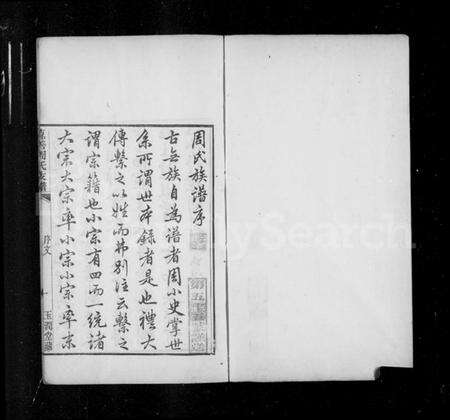 周氏族譜序
古無族自為譜者周小史掌世
系所謂世本錄者是也禮大
傳繫之以姓而弗別注云繫之
謂宗籍也小宗有四而一統諸
大宗大宗率小宗小宗率末
周氏支譜
序文
玉潤堂
FamilySearch